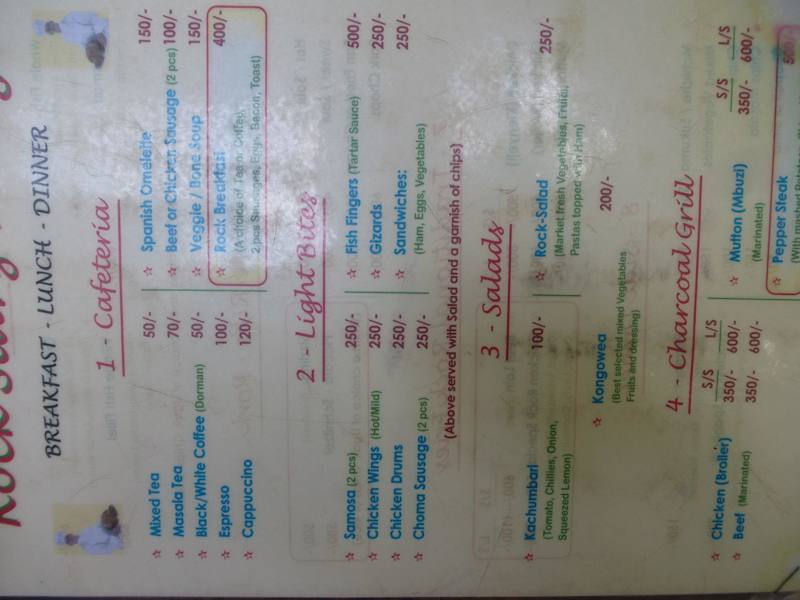 BREAKFAST - LUNCH - DINNER
1 - Cafeteria
Mixed Tea 50/-
Masala Tea 70/-
Black/White Coffee (Dorman) 50/-
Espresso 100/-
Cappuccino 120/-
Spanish Omelette 150/-
Beef or Chicken Sausage (2 pcs) 100/-
Veggie / Bone Soup 150/-
Rock Breakfast 400/-
(A choice of Tea or Coffee,
2 pcs Sausages, Eggs, Bacon, Toast)
2 - Light Bites
Samosa (2 pcs) 250/-
Chicken Wings (Hot/Mild) 250/-
Chicken Drums 250/-
Choma Sausage (2 pcs) 250/-
Fish Fingers (Tartar Sauce) 500/-
Gizards 250/-
Sandwiches: 250/-
(Ham, Eggs, Vegetables)
(Above served with Salad and a garnish of chips)
3 - Salads
Kachumbari 100/-
(Tomato, Chillies, Onion,
Squeezed Lemon)
Rock-Salad 250/-
(Market fresh Vegetables, Fruits,
Pastas topped with Ham)
Kongowea 200/-
(Best selected mixed Vegetables
Fruits and dressing)
4 - Charcoal Grill
S/S L/S
Chicken (Broiler) 350/- 600/-
Beef (Marinated) 350/- 600/-
S/S L/S
Mutton (Mbuzi) 350/- 600/-
(Marinated)
Pepper Steak